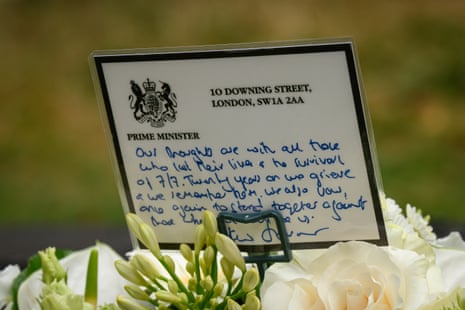 10 DOWNING STREET,
LONDON, SW1A 2AA
PRIME MINISTER
Our thoughts are with all those
who lost their lives & the survivors
of 7/7. Twenty years on we grieve
& we remember them. We also vow,
once again to stand together against
those who
us.